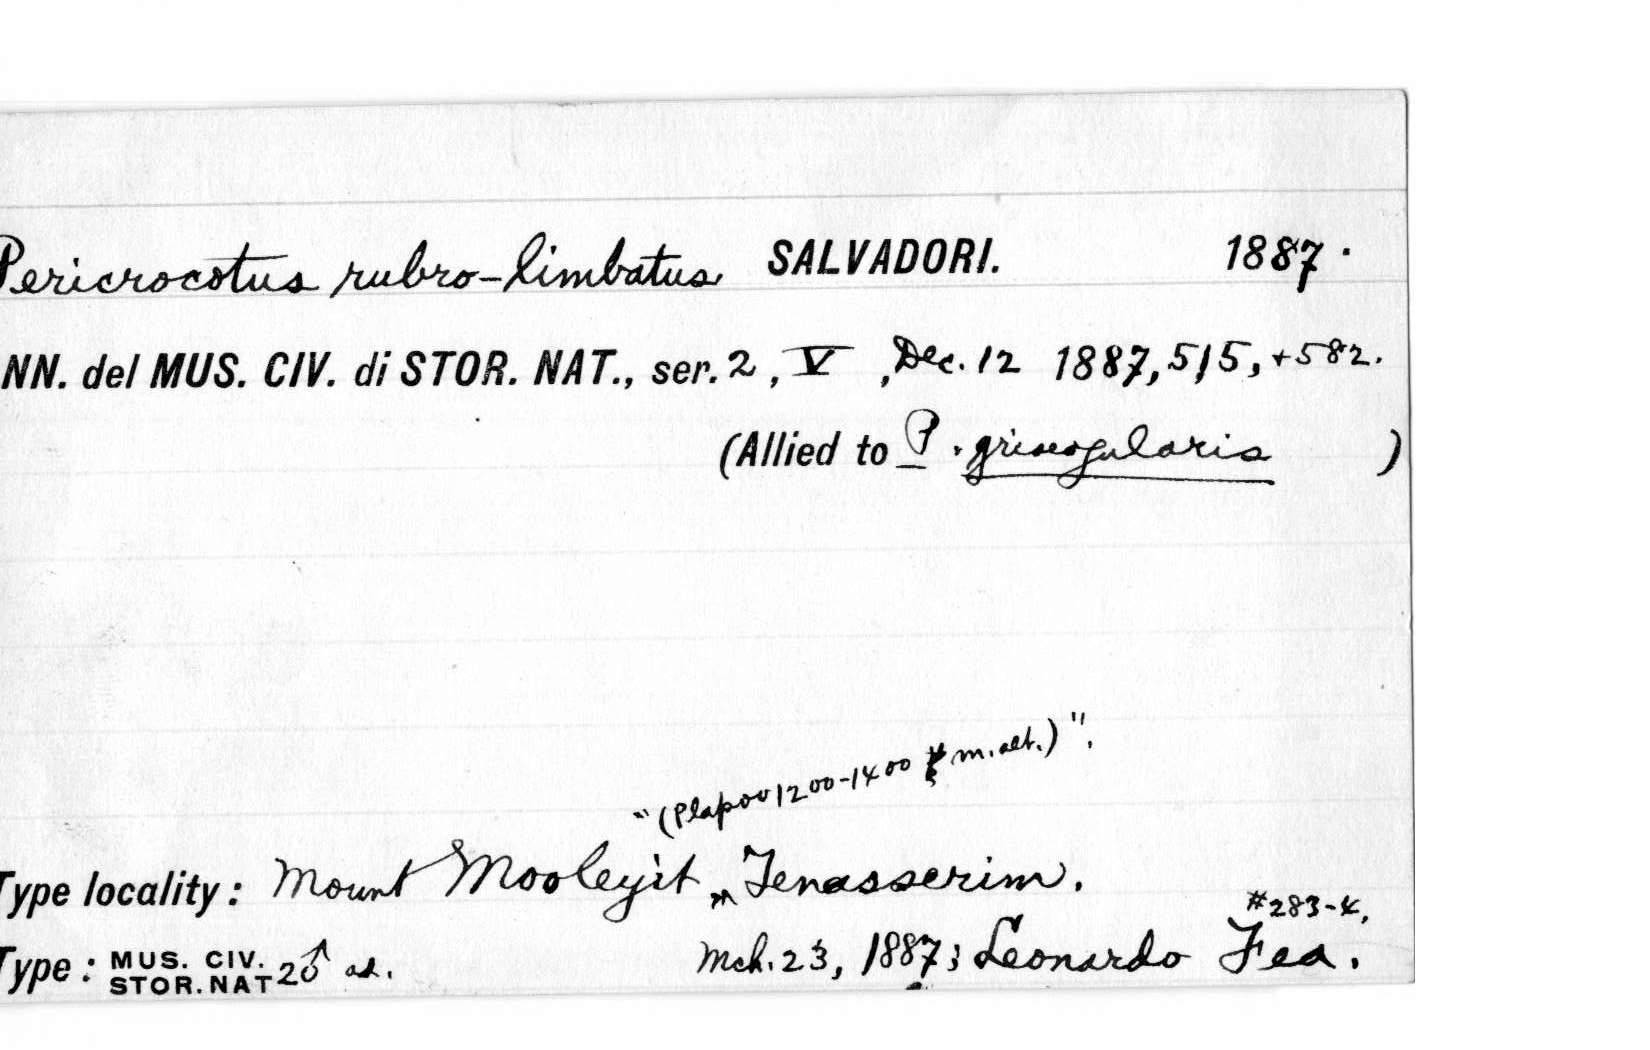 Pericrocotus rubro-limbatus SALVADORI. 1887.
NN. del MUS. CIV. di STOR. NAT., ser. 2, V, Dec. 12 1887, 515, +582.
(Allied to P. griseogularis )
"(Plapoo 1200-1400 m. alt.)".
Type locality: Mount Mooleyit, Tenasserim.
#283-4,
Type: MUS. CIV. STOR. NAT 2♂ ad. Mch. 23, 1887; Leonardo Fea.